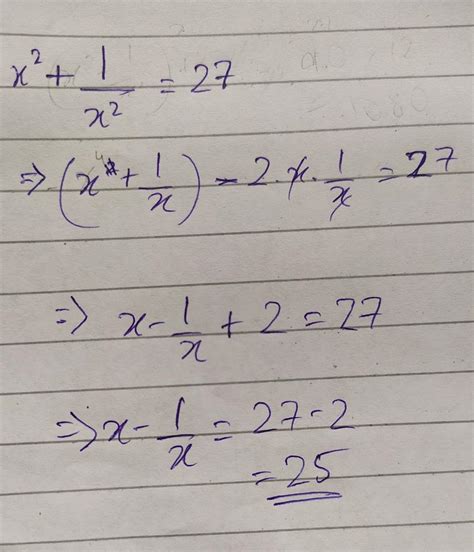 x² + 1/x² = 27
⇒ (x + 1/x) - 2·x·1/x = 27
⇒ x - 1/x + 2 = 27
⇒ x - 1/x = 27 - 2
= 25